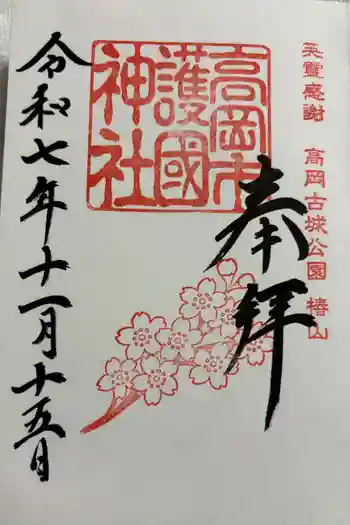 英霊感謝 高岡古城公園 椿山
奉拝
高岡市
護國
神社
令和七年十一月十五日